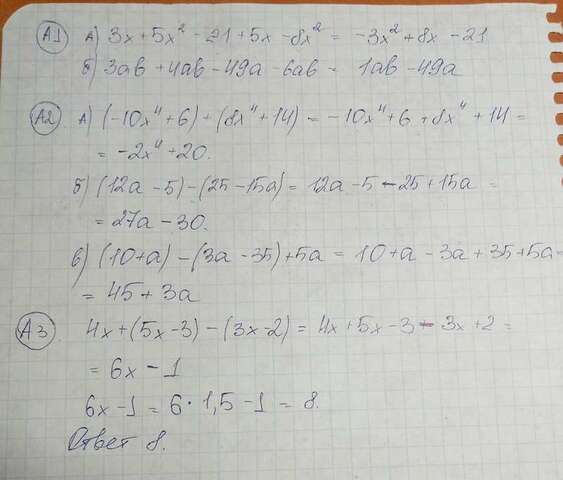 А1 А) 3x + 5x² - 21 + 5x - 8x² = -3x² + 8x - 21
б) 3ab + 4ab - 49a - 6ab = 1ab - 49a
А2 А) (-10x⁴ + 6) + (8x⁴ + 14) = -10x⁴ + 6 + 8x⁴ + 14 =
= -2x⁴ + 20.
б) (12a - 5) - (25 - 15a) = 12a - 5 - 25 + 15a =
= 27a - 30.
в) (10 + a) - (3a - 35) + 5a = 10 + a - 3a + 35 + 5a =
= 45 + 3a
А3 4x + (5x - 3) - (3x - 2) = 4x + 5x - 3 - 3x + 2 =
= 6x - 1
6x - 1 = 6 · 1,5 - 1 = 8.
Ответ 8.